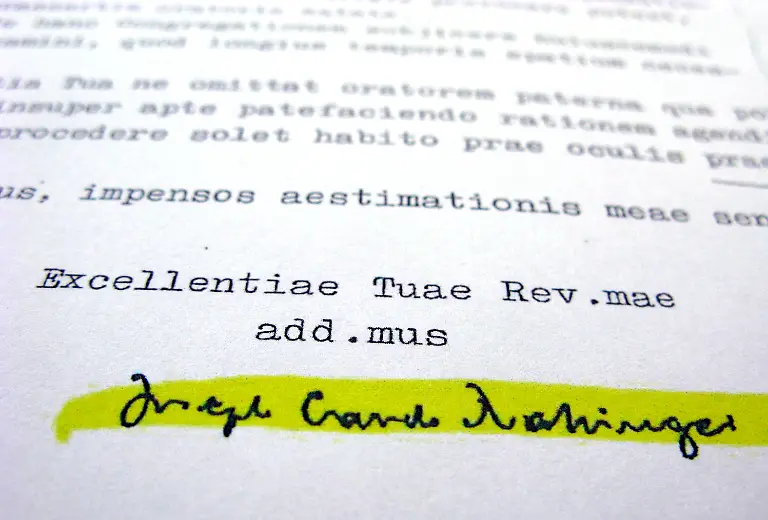 hanc Congregationem
quod longius temporis spatium
Tua ne omittat oratorem paterna qua
insuper apte patefaciendo rationem agendi
procedere solet habito prae oculis
impensos aestimationis meae
Excellentiae Tuae Rev.mae
add.mus
Joseph Card. Ratzinger